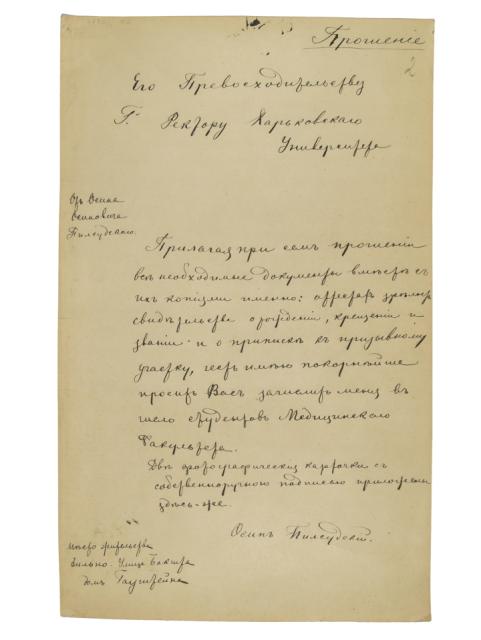 Прошеніе
2
Его Превосходительству
Г. Ректору Харьковскаго
Университета
Отъ Осипа
Осиповича
Пилсудскаго.
Прилагая при семъ прошеніи
всѣ необходимые документы вмѣстѣ съ
ихъ копіями именно: аттестатъ зрѣлости
свидѣтельства о рожденіи, крещеніи и
званіи и о припискѣ къ призывному
участку, честь имѣю покорнѣйше
просить Васъ зачислить меня въ
число студентовъ Медицинскаго
Факультета.
Двѣ фотографическія карточки съ
собственноручною подписью приложены
здѣсь-же.
Осипъ Пилсудскій.
Мѣсто жительства
Вильно. Улица Бакшта
домъ